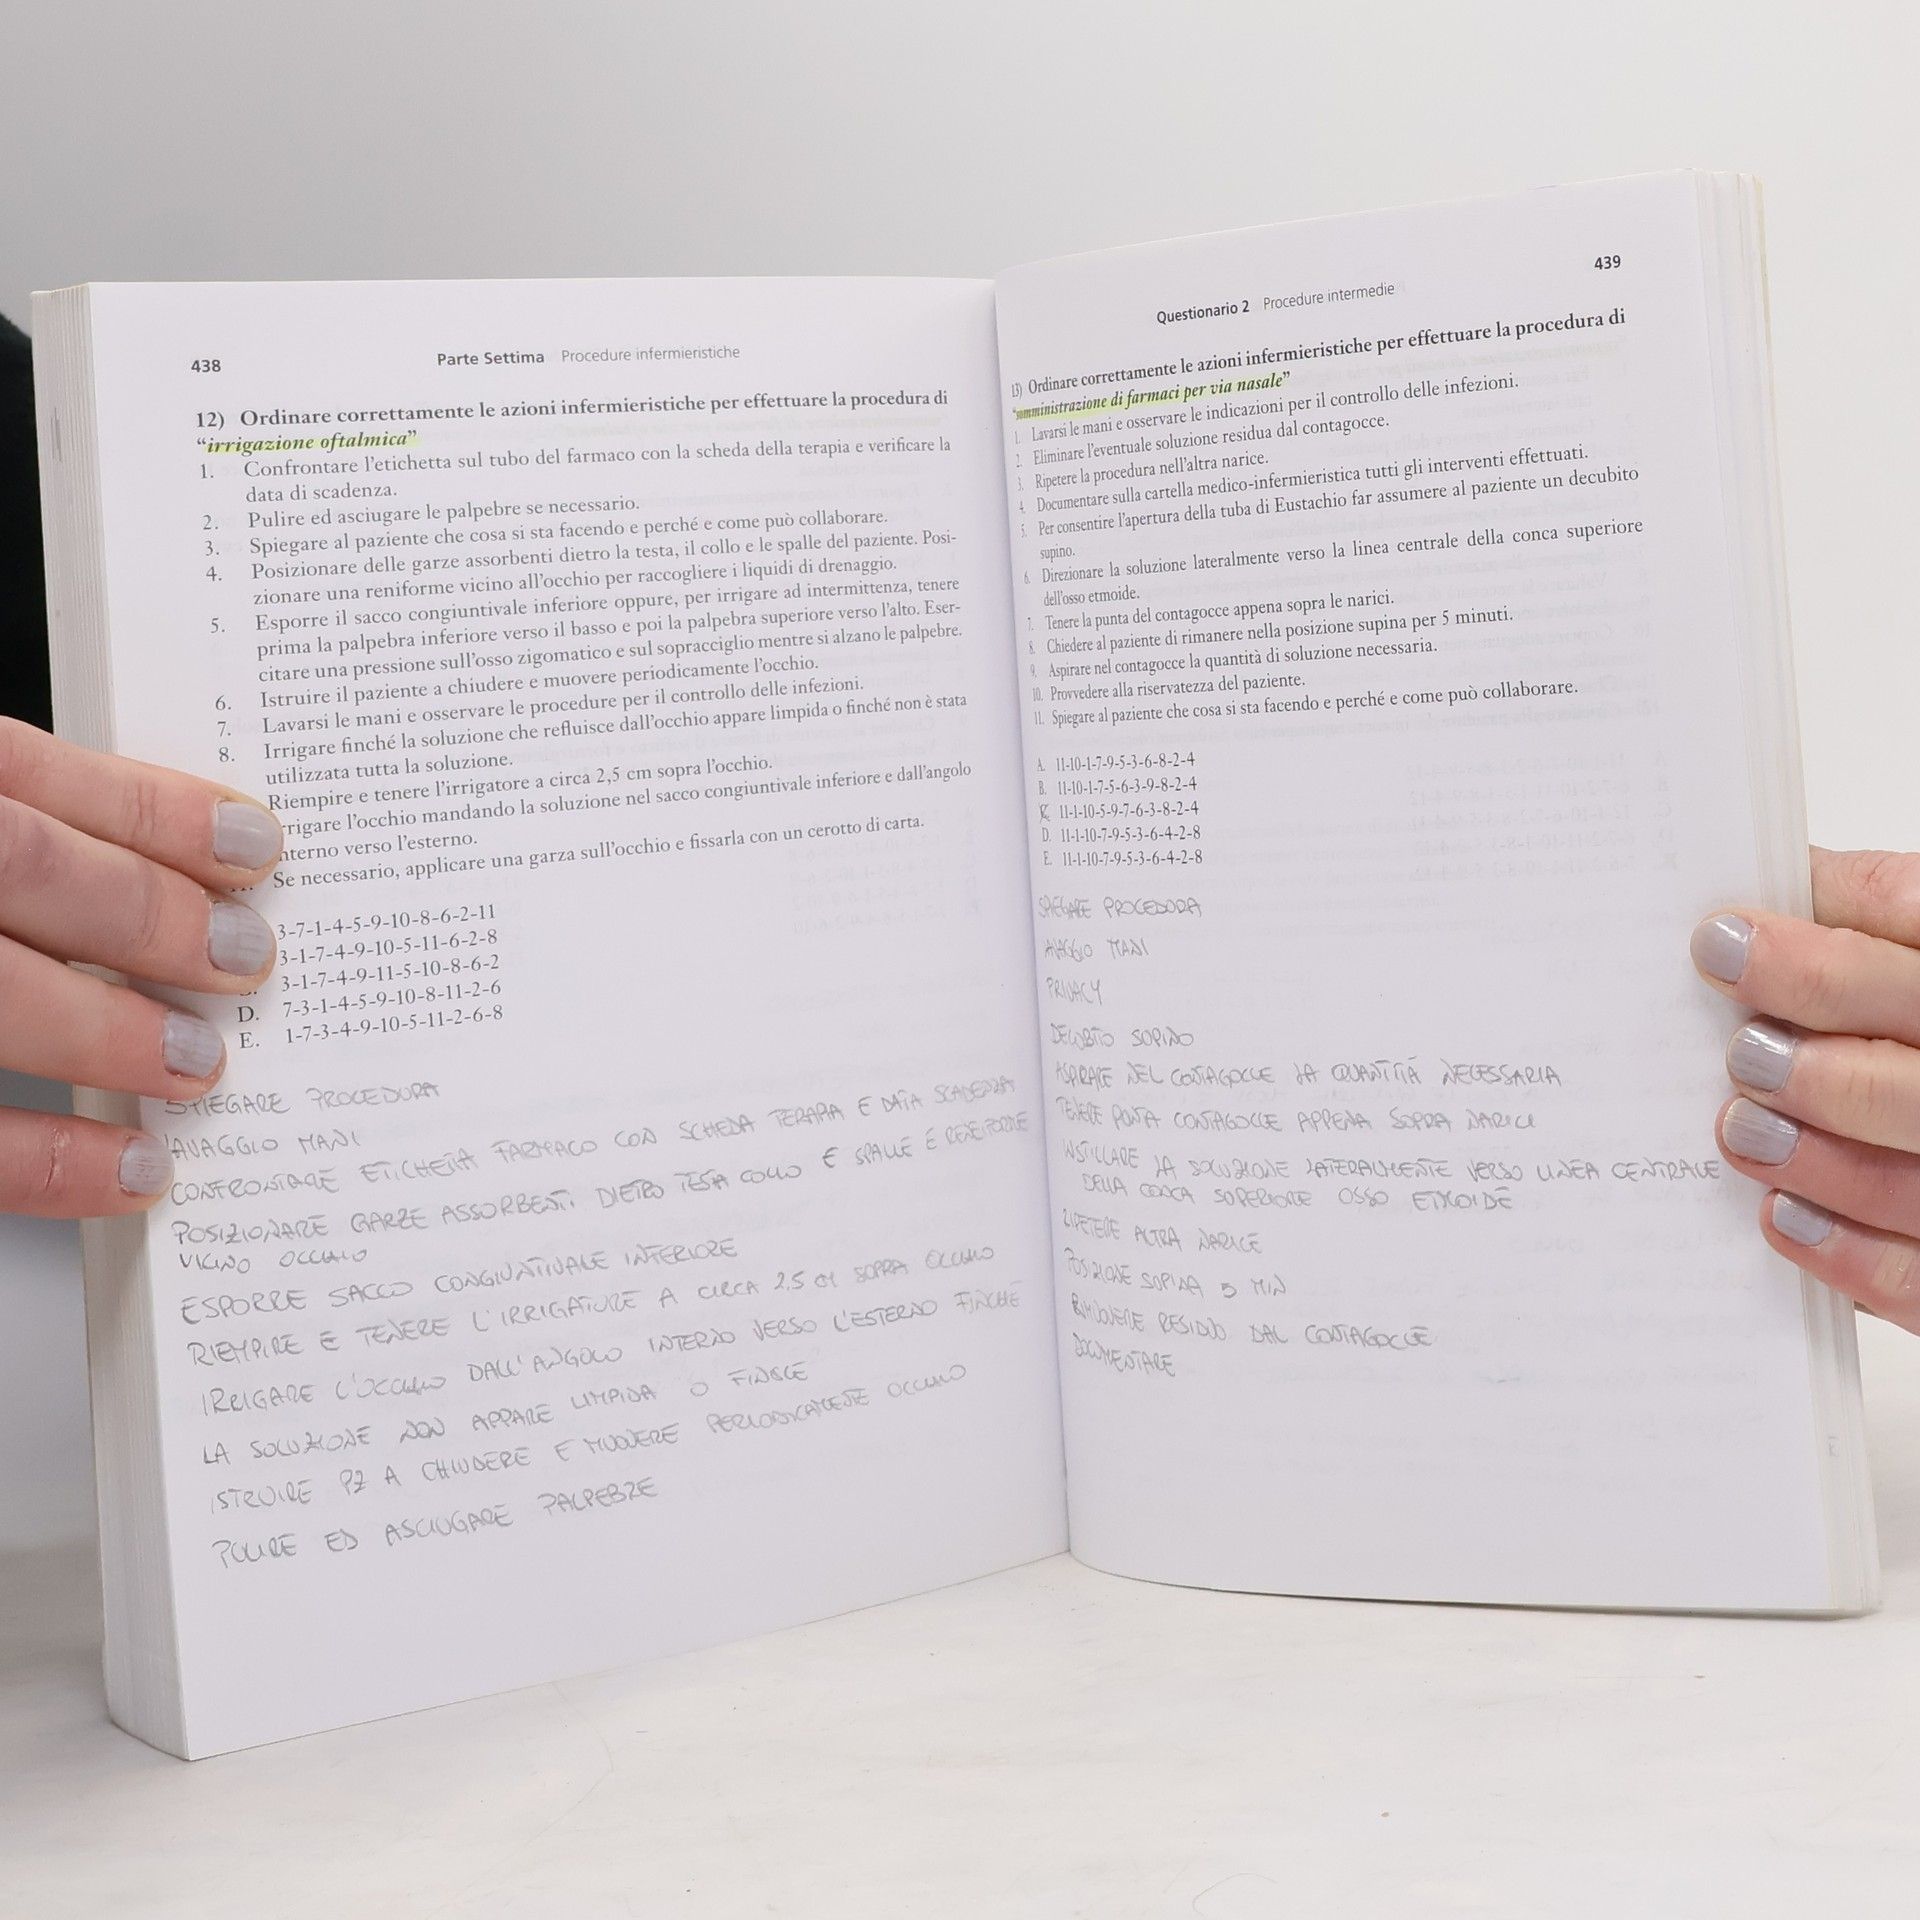 438
Parte Settima Procedure infermieristiche
12) Ordinare correttamente le azioni infermieristiche per effettuare la procedura di
“irrigazione oftalmica”
1. Confrontare l’etichetta sul tubo del farmaco con la scheda della terapia e verificare la
data di scadenza.
2. Pulire ed asciugare le palpebre se necessario.
3. Spiegare al paziente che cosa si sta facendo e perché e come può collaborare.
4. Posizionare delle garze assorbenti dietro la testa, il collo e le spalle del paziente. Posi-
zionare una reniforme vicino all’occhio per raccogliere i liquidi di drenaggio.
5. Esporre il sacco congiuntivale inferiore oppure, per irrigare ad intermittenza, tenere
prima la palpebra inferiore verso il basso e poi la palpebra superiore verso l’alto. Eser-
citare una pressione sull’osso zigomatico e sul sopracciglio mentre si alzano le palpebre.
6. Istruire il paziente a chiudere e muovere periodicamente l’occhio.
7. Lavarsi le mani e osservare le procedure per il controllo delle infezioni.
8. Irrigare finché la soluzione che refluisce dall’occhio appare limpida o finché non è stata
utilizzata tutta la soluzione.
Riempire e tenere l’irrigatore a circa 2,5 cm sopra l’occhio.
rrigare l’occhio mandando la soluzione nel sacco congiuntivale inferiore e dall’angolo
nterno verso l’esterno.
Se necessario, applicare una garza sull’occhio e fissarla con un cerotto di carta.
3-7-1-4-5-9-10-8-6-2-11
3-1-7-4-9-10-5-11-6-2-8
3-1-7-4-9-11-5-10-8-6-2
D. 7-3-1-4-5-9-10-8-11-2-6
E. 1-7-3-4-9-10-5-11-2-6-8
SPIEGARE PROCEDURA
LAVAGGIO MANI
CONFRONTARE ETICHETTA FARMACO CON SCHEDA TERAPIA E DATA SCADENZA
POSIZIONARE GARZE ASSORBENTI DIETRO TESTA COLLO E SPALLE E RENIFORME
VICINO OCCHIO
ESPORRE SACCO CONGIUNTIVALE INFERIORE
RIEMPIRE E TENERE L'IRRIGATORE A CIRCA 2,5 CM SOPRA OCCHIO
IRRIGARE L'OCCHIO DALL'ANGOLO INTERNO VERSO L'ESTERNO FINCHÉ
LA SOLUZIONE NON APPARE LIMPIDA O FINISCE
ISTRUIRE PZ A CHIUDERE E MUOVERE PERIODICAMENTE OCCHIO
PULIRE ED ASCIUGARE PALPEBRE
439
Questionario 2 Procedure intermedie
13) Ordinare correttamente le azioni infermieristiche per effettuare la procedura di
“somministrazione di farmaci per via nasale”
1. Lavarsi le mani e osservare le indicazioni per il controllo delle infezioni.
2. Eliminare l’eventuale soluzione residua dal contagocce.
3. Ripetere la procedura nell’altra narice.
4. Documentare sulla cartella medico-infermieristica tutti gli interventi effettuati.
5. Per consentire l’apertura della tuba di Eustachio far assumere al paziente un decubito
supino.
6. Direzionare la soluzione lateralmente verso la linea centrale della conca superiore
dell’osso etmoide.
7. Tenere la punta del contagocce appena sopra le narici.
8. Chiedere al paziente di rimanere nella posizione supina per 5 minuti.
9. Aspirare nel contagocce la quantità di soluzione necessaria.
10. Provvedere alla riservatezza del paziente.
11. Spiegare al paziente che cosa si sta facendo e perché e come può collaborare.
A. 11-10-1-7-9-5-3-6-8-2-4
B. 11-10-1-7-5-6-3-9-8-2-4
C. 11-1-10-5-9-7-6-3-8-2-4
D. 11-1-10-7-9-5-3-6-4-2-8
E. 11-1-10-7-9-5-3-6-4-2-8
SPIEGARE PROCEDURA
LAVAGGIO MANI
PRIVACY
DECUBITO SUPINO
ASPIRARE NEL CONTAGOCCE LA QUANTITÀ NECESSARIA
TENERE PUNTA CONTAGOCCE APPENA SOPRA NARICI
INSTILLARE LA SOLUZIONE LATERALMENTE VERSO LINEA CENTRALE
DELLA CONCA SUPERIORE OSSO ETMOIDE
RIPETERE ALTRA NARICE
POSIZIONE SUPINA 5 MIN
RIMUOVERE RESIDUO DAL CONTAGOCCE
DOCUMENTARE